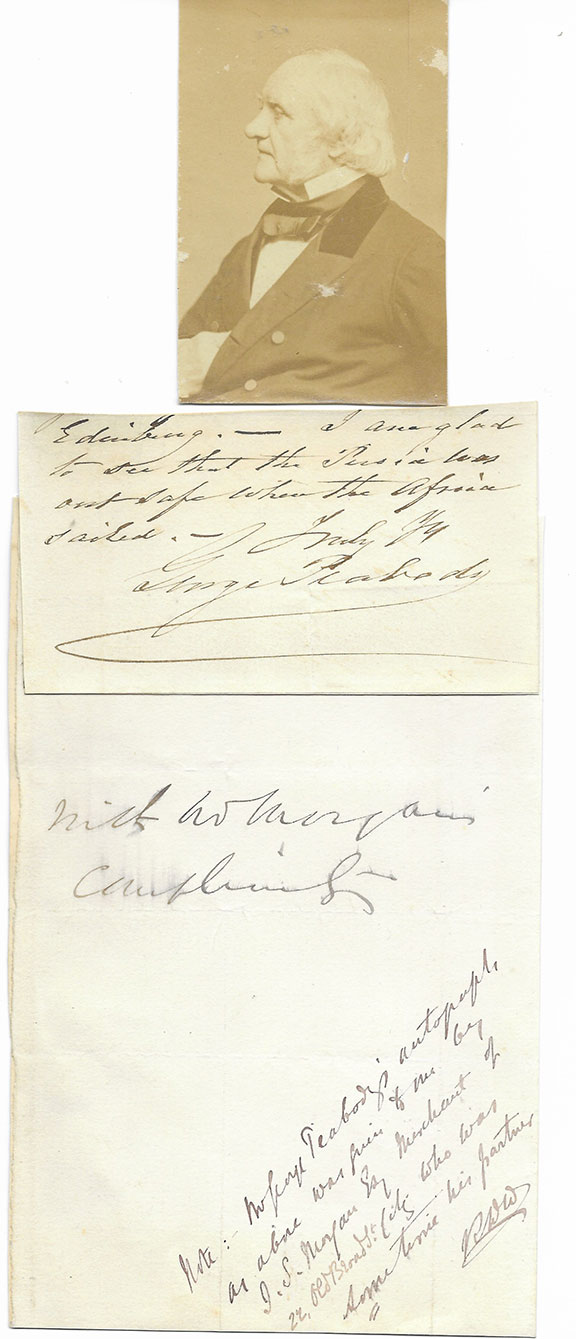 Edinburg. — I am glad
to see that the Persia was
out safe when the Africa
sailed. — Truly Yr
George Peabody
With Mr Morgan's
Compliments
Note: Mr George Peabody's autograph,
as above was given to me by
J. S. Morgan Esq Merchant of
22, Old Broad St. City who was
sometime his partner